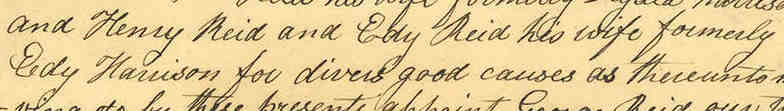 his wife formerly
and Henry Reid and Edy Reid his wife formerly
Edy Harrison for divers good causes as thereunto
by these presents appoint George Reid our